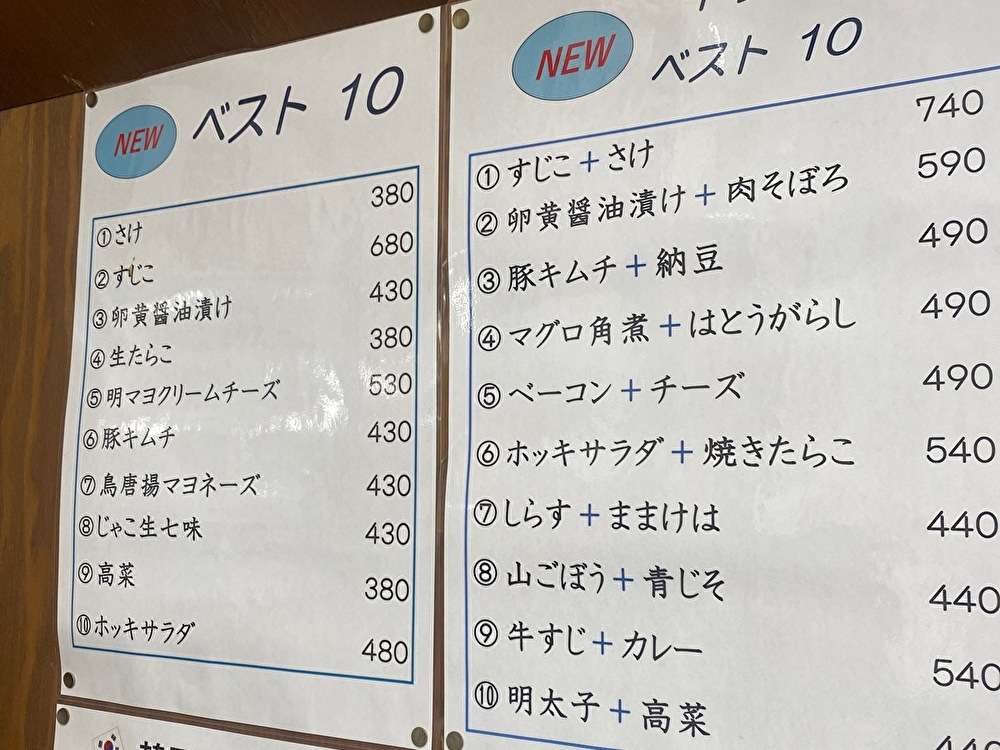 NEW ベスト 10
①さけ 380
②すじこ 680
③卵黄醤油漬け 430
④生たらこ 380
⑤明マヨクリームチーズ 530
⑥豚キムチ 430
⑦鳥唐揚マヨネーズ 430
⑧じゃこ生七味 430
⑨高菜 380
⑩ホッキサラダ 480
NEW ベスト 10
①すじこ+さけ 740
②卵黄醤油漬け+肉そぼろ 590
③豚キムチ+納豆 490
④マグロ角煮+はとうがらし 490
⑤ベーコン+チーズ 490
⑥ホッキサラダ+焼きたらこ 540
⑦しらす+ままけは 440
⑧山ごぼう+青じそ 440
⑨牛すじ+カレー 540
⑩明太子+高菜